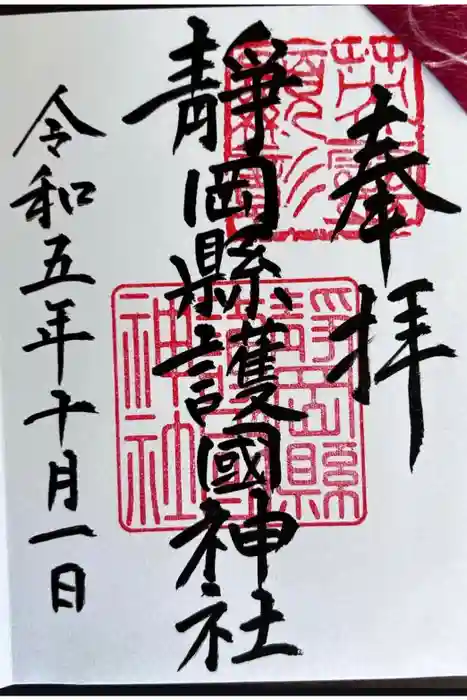 奉拝
靜岡縣護國神社
令和五年十月一日
靜岡縣護國神社